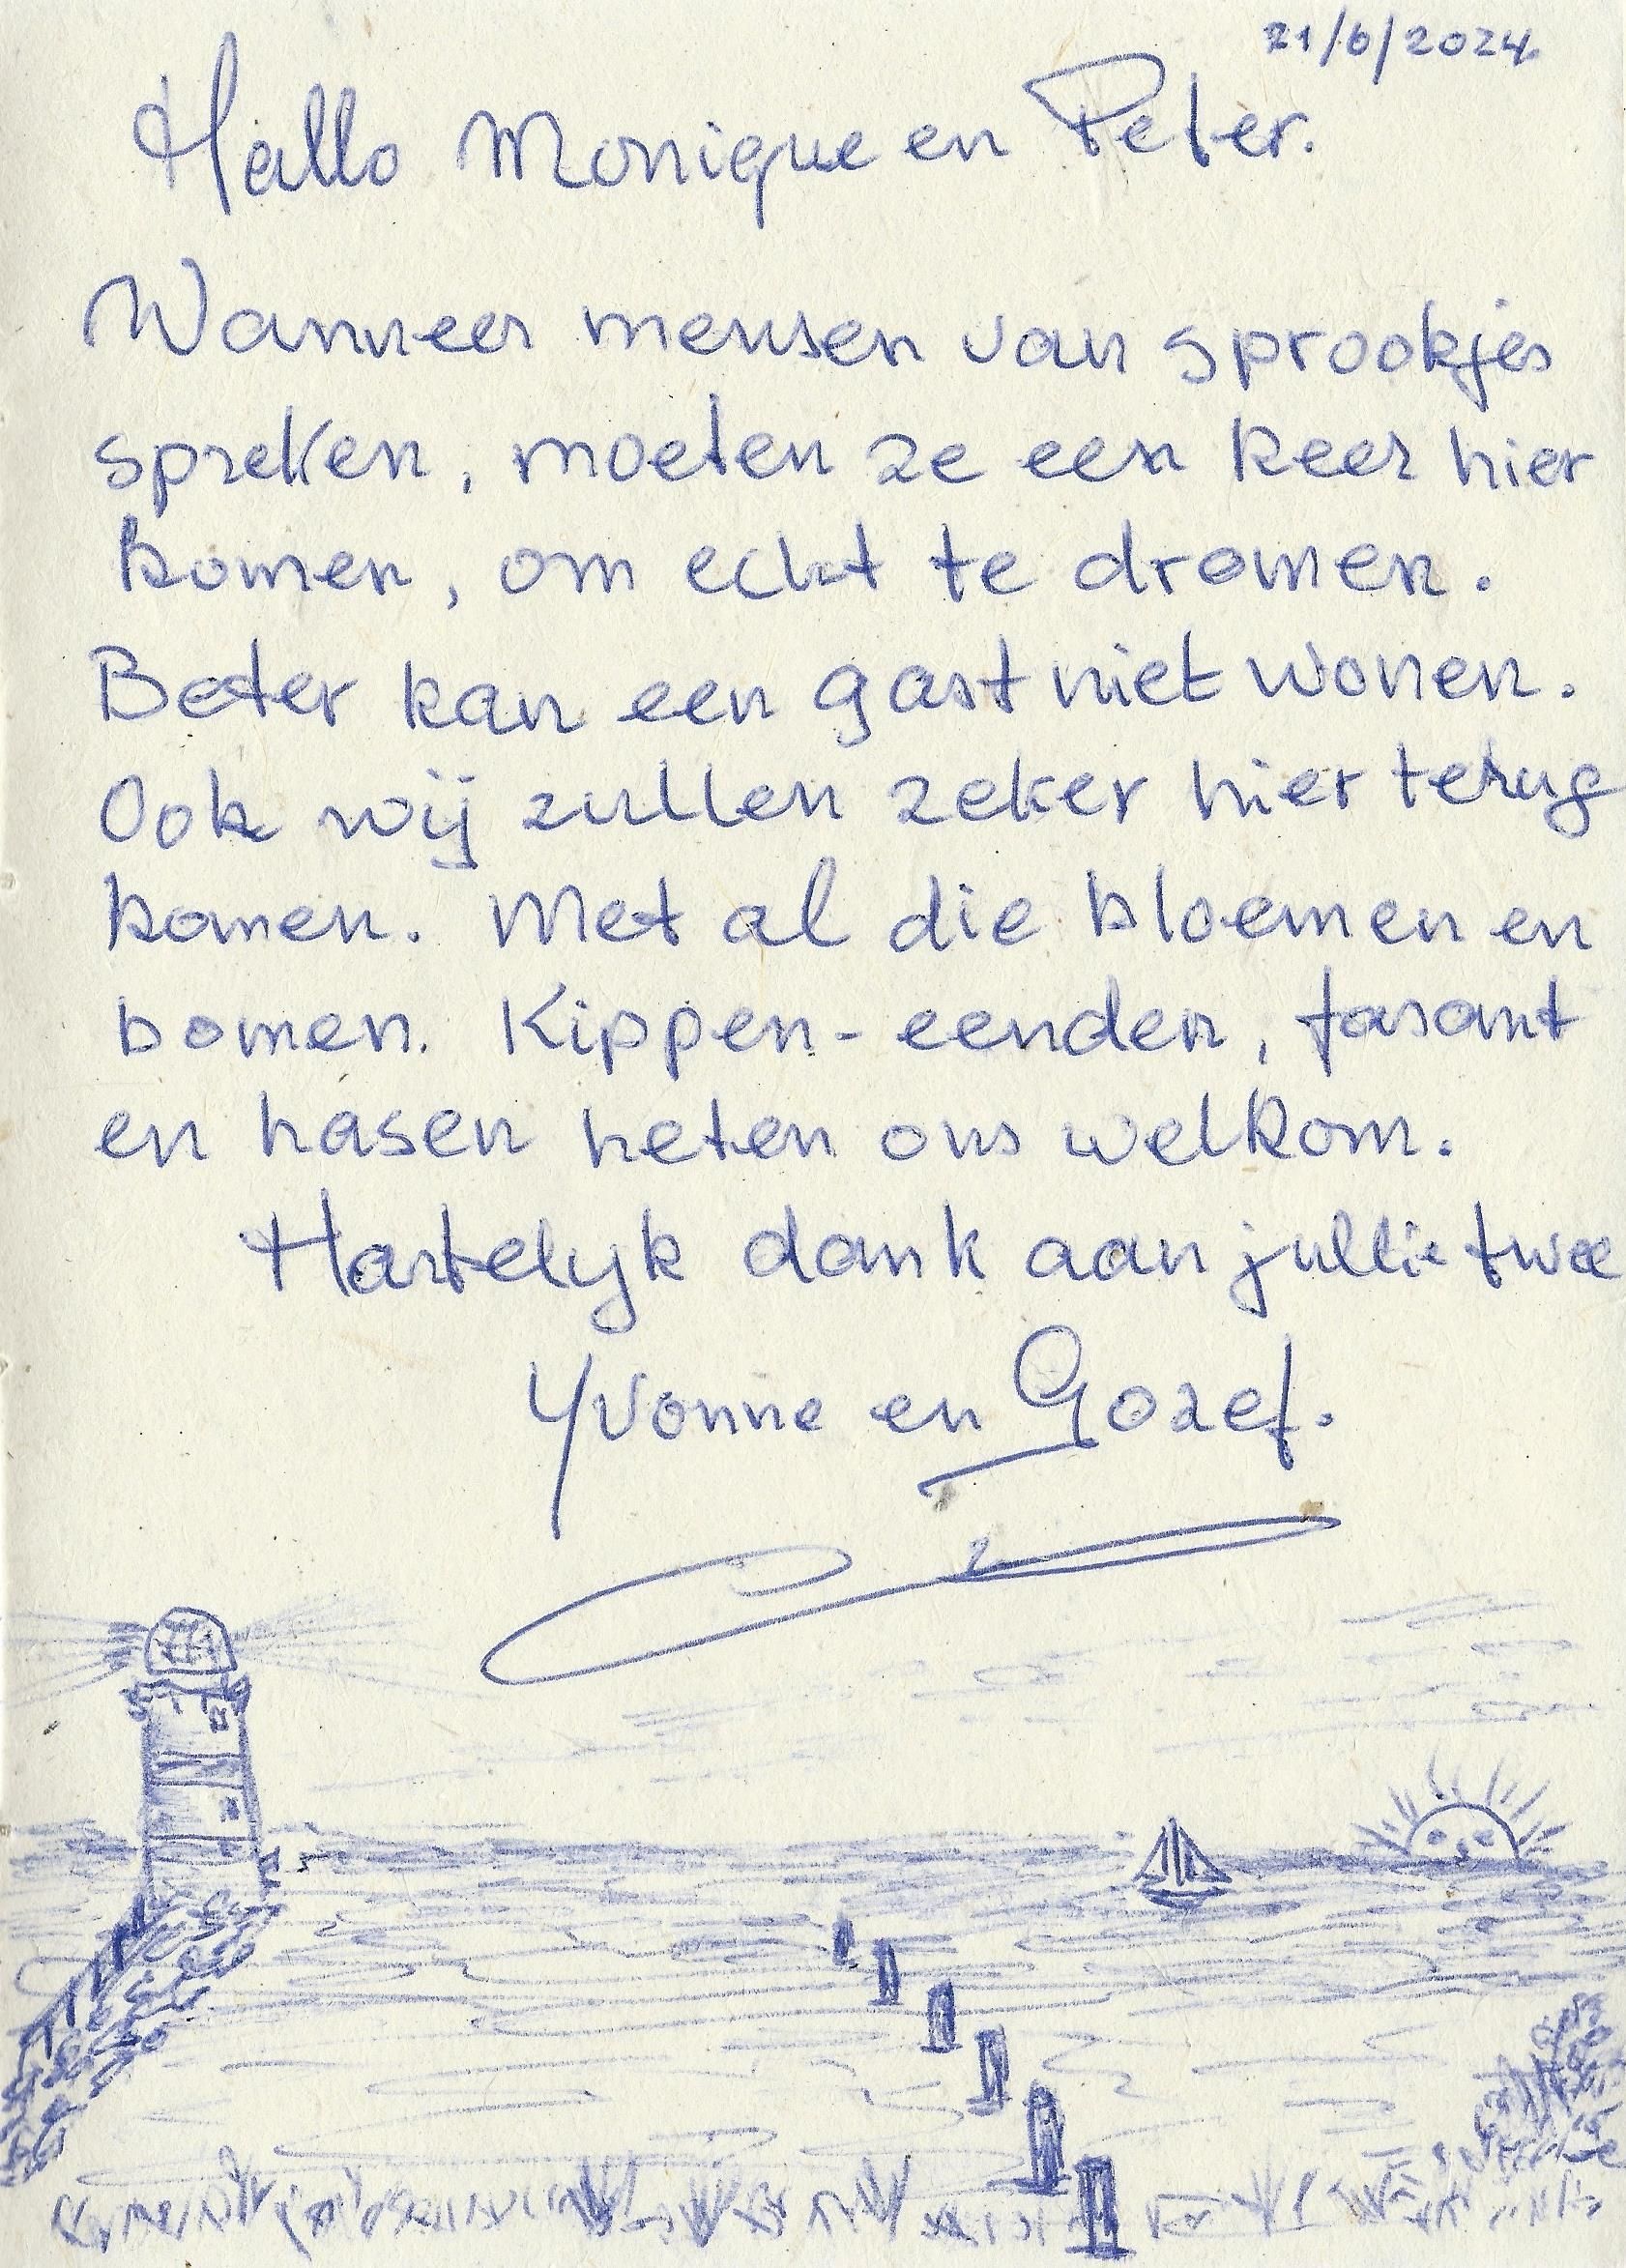 21/6/2024
Hallo Monique en Peter.
Wanneer mensen van sprookjes
spreken, moeten ze een keer hier
komen, om echt te dromen.
Beter kan een gast niet wonen.
Ook wij zullen zeker hier terug
komen. Met al die bloemen en
bomen. Kippen-eenden, fasant
en hasen heten ons welkom.
Hartelyk dank aan jullie twee
Yvonne en Gozef.